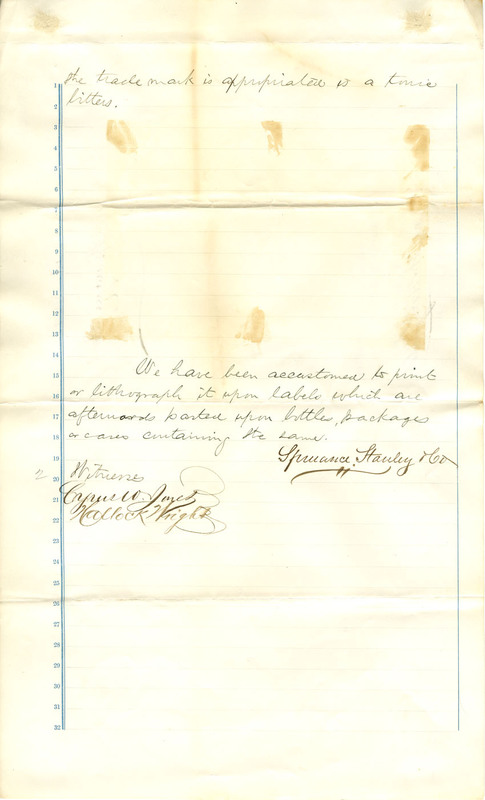 the trade mark is appropriated to a tonic
bitters.
1
2
3
4
5
6
7
8
9
10
11
12
13
14
We have been accustomed to print
15
16 or lithograph it upon labels which are
17 afterwards pasted upon bottles, packages
18 or cases containing the same.
19 Spruance, Stanley & Co
2 20 Witnesses
21 Cyrus W. Jones
22 Hallock Wright
23
24
25
26
27
28
29
30
31
32